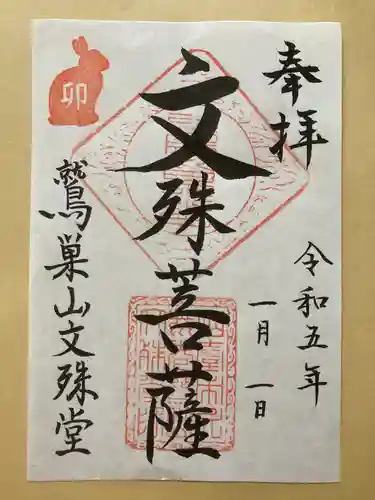 奉拝
令和五年
一月 一日
文殊菩薩
卯
鷲巣山文殊堂